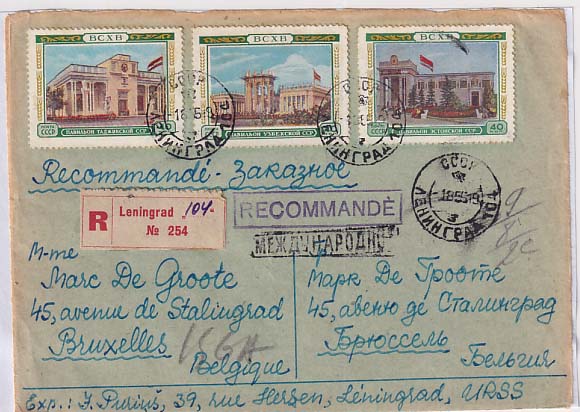 ВСХВ
ПОЧТА СССР
ПАВИЛЬОН ТАДЖИКСКОЙ ССР
ВСХВ
ПАВИЛЬОН УЗБЕКСКОЙ ССР
ВСХВ
ПАВИЛЬОН ЭСТОНСКОЙ ССР 40
СССР
ЛЕНИНГРАД
СССР
ЛЕНИНГРАД
Recommandé - Заказное
R Leningrad 104.
№ 254
RECOMMANDÈ
МЕЖДУНАРОДНОЕ
СССР
ЛЕНИНГРАД 104
M-me
Marc De Groote
45, avenue de Stalingrad
Bruxelles
Belgique
Марк Де Гроотe
45, авеню де Сталинград
Брюссель
Бельгия
Exp.: J. 39, rue Herzen, Léningrad, URSS